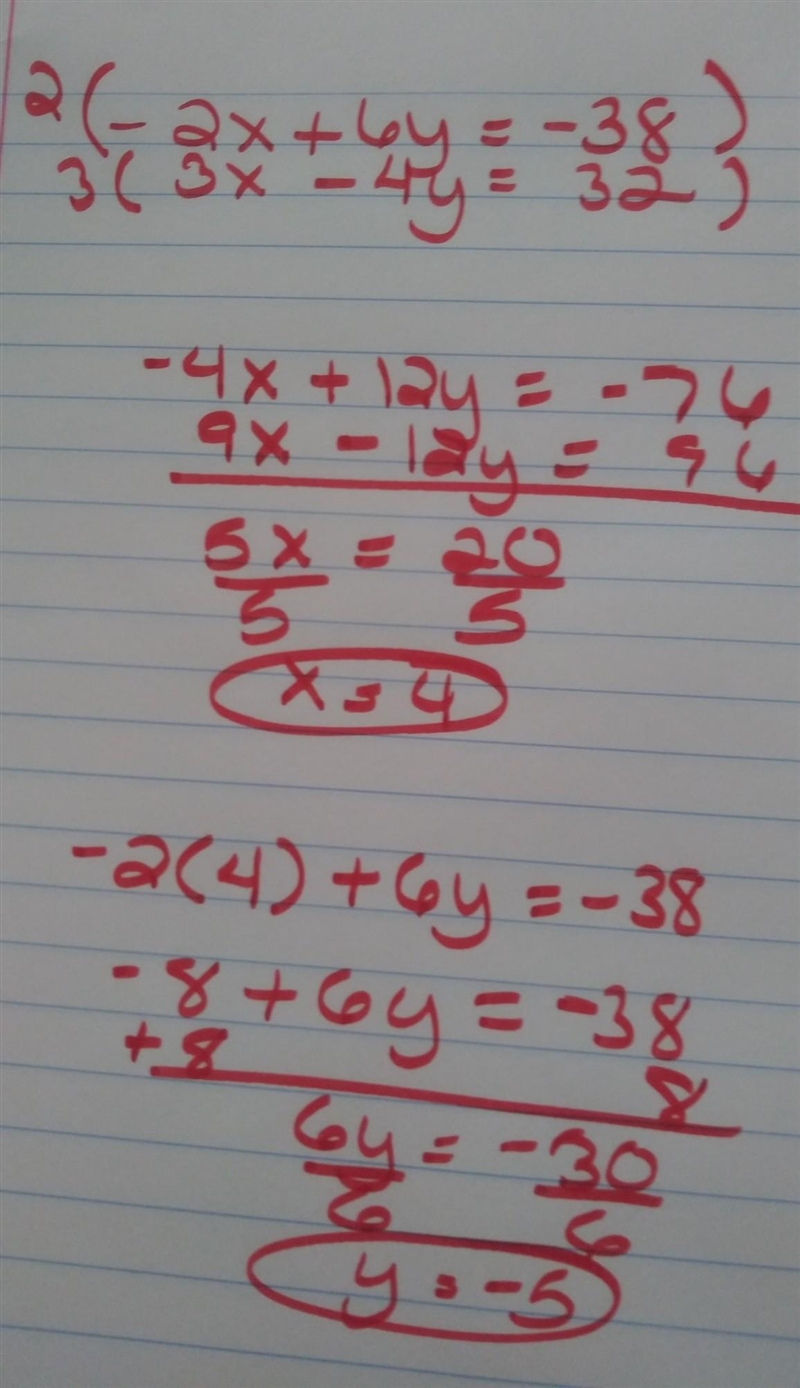 2(-2x+6y=-38)
3(3x-4y=32)
-4x+12y=-76
9x-12y=96
5x=20
5 5
x=4
-2(4)+6y=-38
-8+6y=-38
+8 8
6y=-30
6 6
y=-5